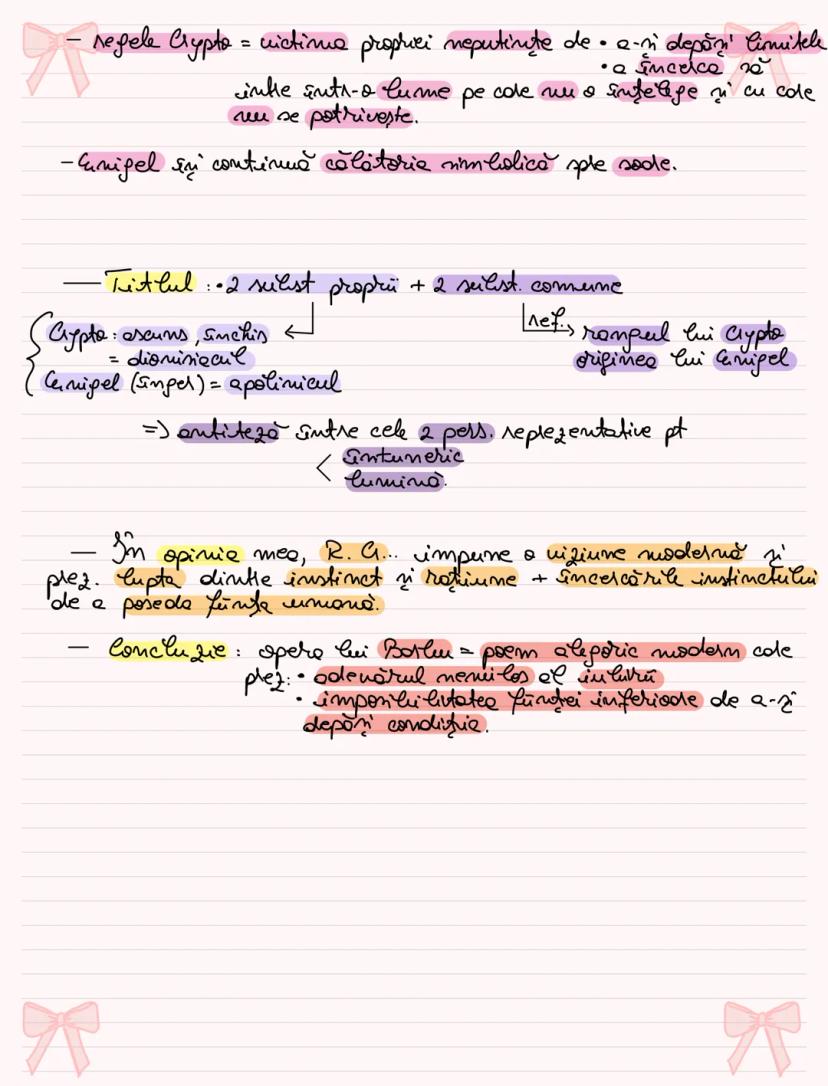 - regele Crypto = victima propriei neputințe de • a-și depăși limitele
• a încerca să
intre într-o lume pe care nu o înțelege și cu care
nu se potrivește.
- Enigel își continuă călătoria simbolică spre soare.
— Titlul : • 2 subst proprii + 2 subst. comune
Crypto : ascuns, închis
= dionisiacul
Enigel (înger) = apolinicul
ref. rangul lui Crypto
originea lui Enigel
=> antiteză între cele 2 pers. reprezentative pt
< întuneric
lumină.
— În opinia mea, R. C... impune o viziune modernă și
prez. lupta dintre instinct și rațiune + încercările instinctului
de a poseda ființa umană.
— Concluzie : opera lui Barbu = poem alegoric modern care
prez: • adevărul nemilos al iubirii
• imposibilitatea ființei inferioare de a-și
depăși condiția.